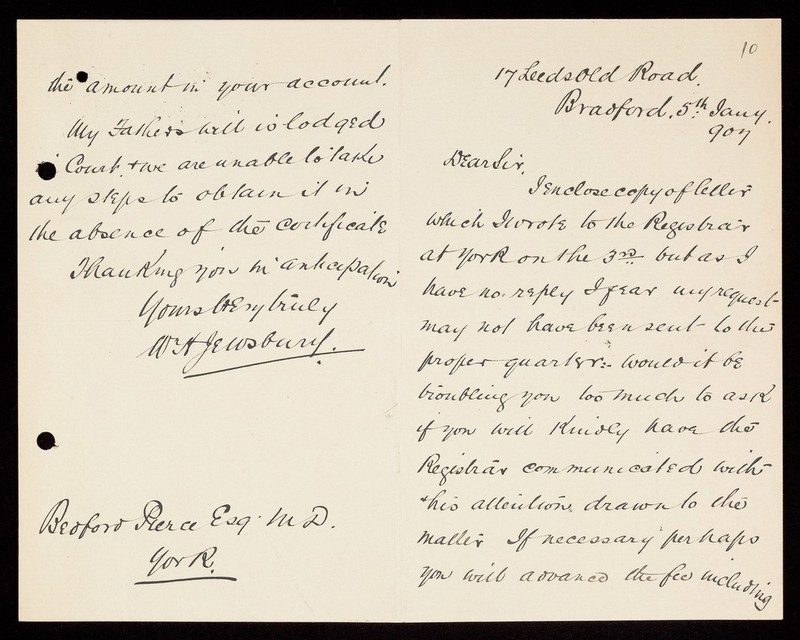 10
17 Leeds Old Road.
Bradford. 5th Jany.
907
Dear Sir,
I enclose copy of letter
which I wrote to the Registrar
at York on the 3rd but as I
have no reply I fear my request
may not have been sent to the
proper quarter:- would it be
troubling you too much to ask
if you will kindly have the
Registrar communicated with
+ his attention drawn to the
matter If necessary perhaps
you will advance the fee including
the amount in your account.
My Fathers will is lodged
Court, + we are unable to take
any steps to obtain it in
the absence of the certificate
Thanking you in anticipation
Yours Very truly
W H Jewsbury.
Bedford Pierce Esq. M D.
York.